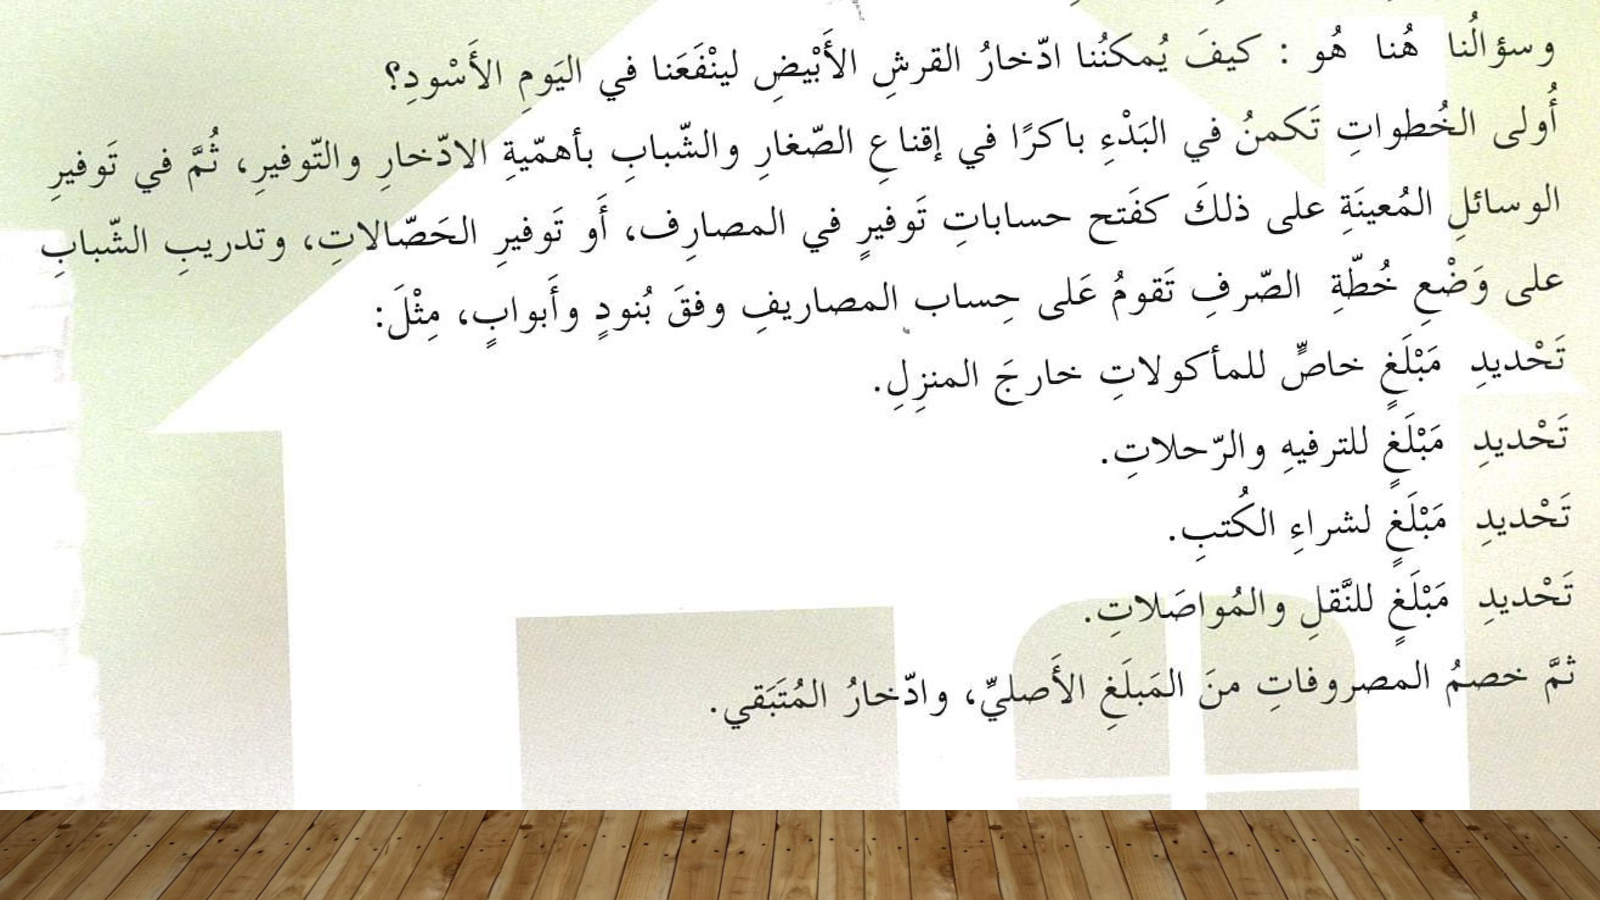 وسؤالُنا هُنا هُو : كيفَ يُمكنُنا ادّخارُ القرشِ الأَبْيضِ لينْفَعَنا في اليَومِ الأَسْودِ؟
أُولى الخُطواتِ تَكمنُ في البَدْءِ باكرًا في إقناعِ الصّغارِ والشّبابِ بأهمّيةِ الادّخارِ والتّوفيرِ، ثُمَّ في تَوفيرِ
الوسائلِ المُعينَةِ على ذلكَ كفَتح حساباتِ تَوفيرٍ في المصارِف، أَو تَوفيرِ الحَصّالاتِ، وتدريبِ الشّبابِ
على وَضْعِ خُطّةِ الصّرفِ تَقومُ عَلى حِساب المصاريفِ وفقَ بُنودٍ وأَبوابٍ، مِثْلَ:
تَحْديدِ مَبْلَغٍ خاصٍّ للمأكولاتِ خارجَ المنزِلِ.
تَحْديدِ مَبْلَغٍ للترفيهِ والرّحلاتِ.
تَحْديدِ مَبْلَغٍ لشراءِ الكُتبِ.
تَحْديدِ مَبْلَغٍ للنَّقلِ والمُواصَلاتِ.
ثمَّ خصمُ المصروفاتِ منَ المَبلَغِ الأَصليِّ، وادّخارُ المُتَبَقي.